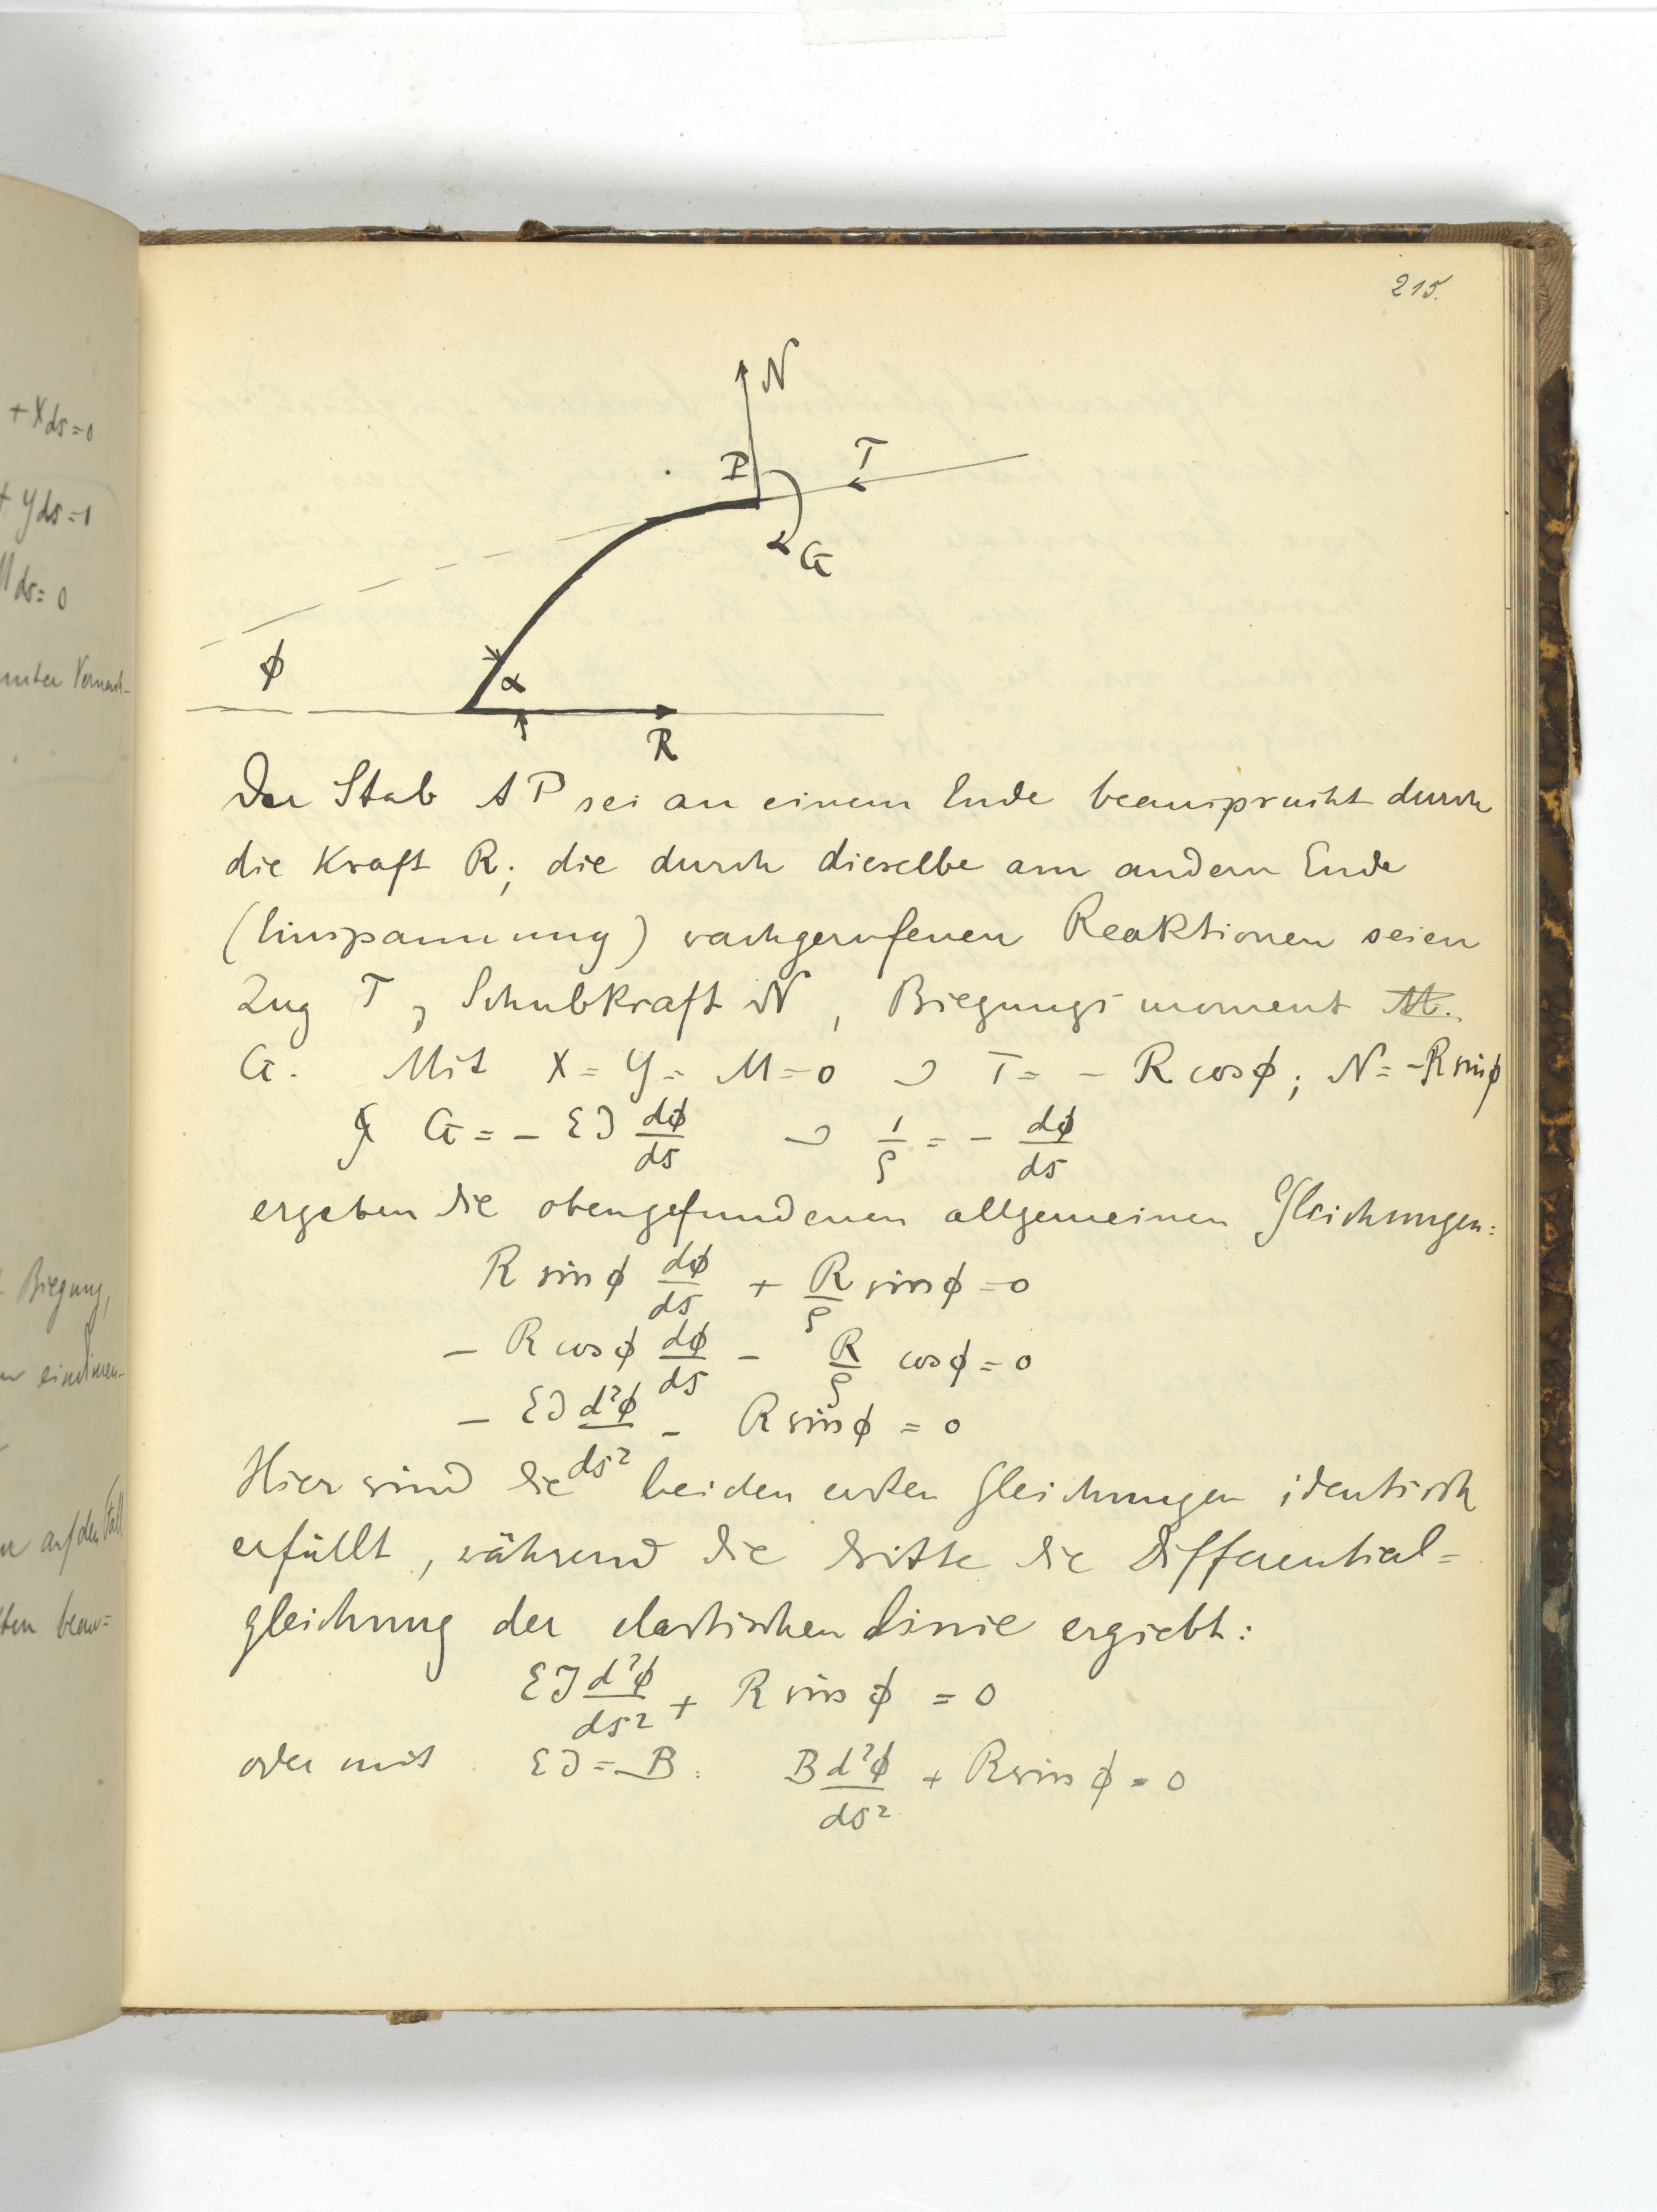 215.
N
P
T
G
ϕ
α
R
Der Stab AP sei an einem Ende beansprucht durch
die Kraft R; die durch dieselbe am andern Ende
(Einspannung) wachgerufenen Reaktionen seien
Zug T, Schubkraft N, Biegungsmoment M.
G. Mit X = Y = M = 0 ⊃ T = - R cos ϕ; N = - R sin ϕ
G = - EJ dϕ/ds ⊃ 1/ρ = - dϕ/ds
ergeben die obengefundenen allgemeinen Gleichungen:
R sin ϕ dϕ/ds + R/ρ sin ϕ = 0
- R cos ϕ dϕ/ds - R/ρ cos ϕ = 0
- EJ d²ϕ/ds² - R sin ϕ = 0
Hier sind die beiden ersten Gleichungen identisch
erfüllt, während die dritte die Differential=
gleichung der elastischen Linie ergiebt:
EJ d²ϕ/ds² + R sin ϕ = 0
oder mit EJ = B: B d²ϕ/ds² + R sin ϕ = 0
+ X ds = 0
+ Y ds = 0
M ds = 0
Biegung,
auf den Fall